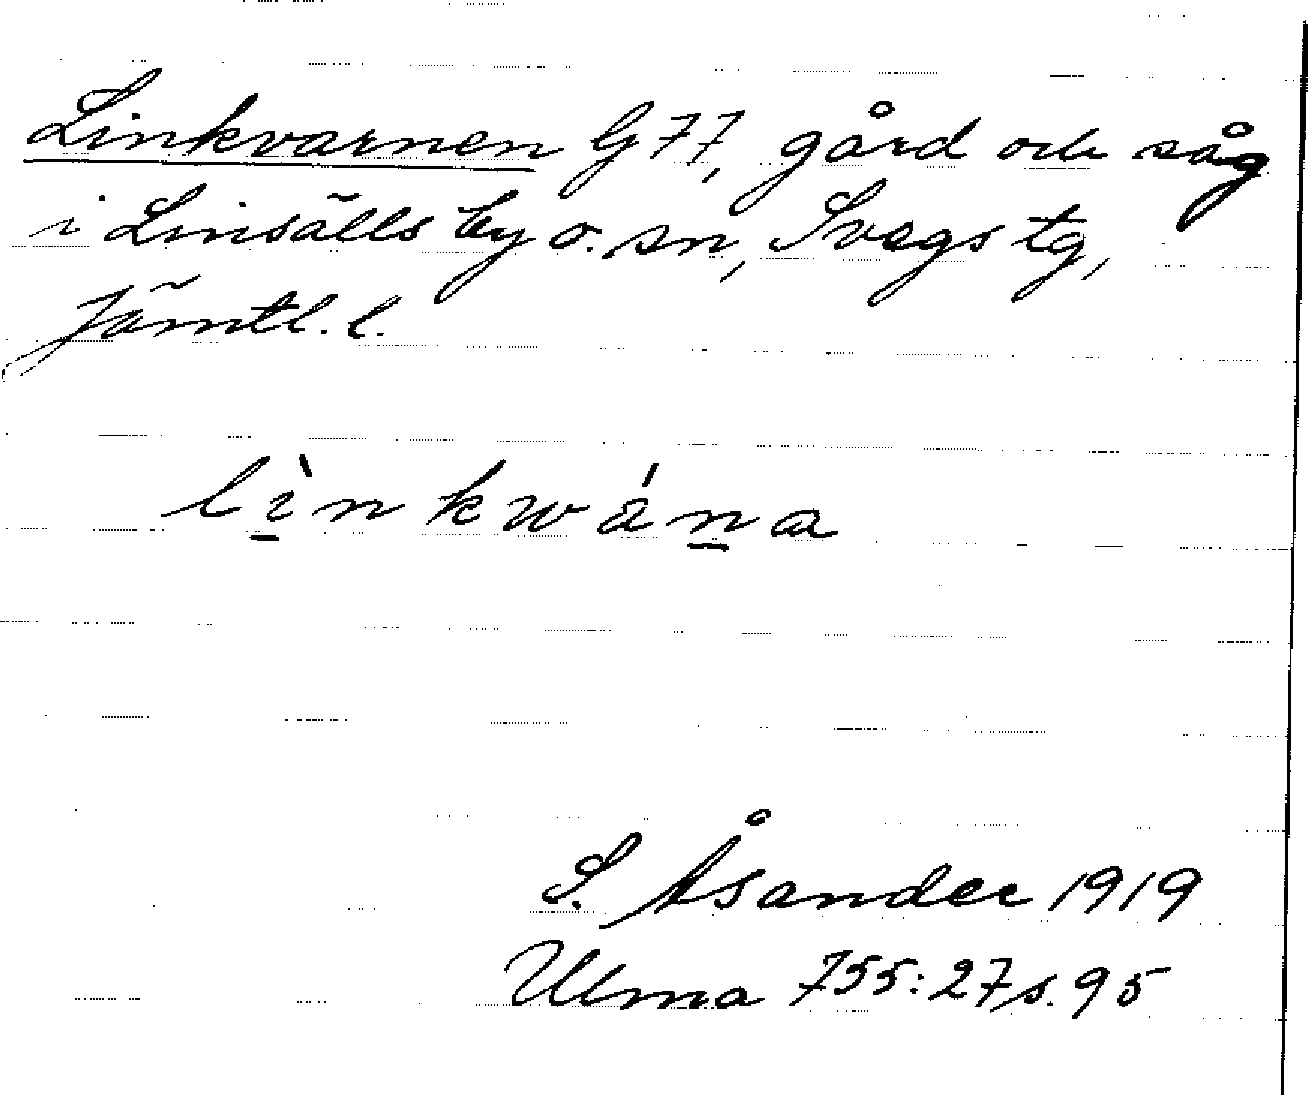 Linkvarnen G 77, gård och såg
i Linsälls by o. sn, Svegs tg,
Jämtl. l.
lìnkwána
S. Åsander 1919
Ulma 755:27 s. 95